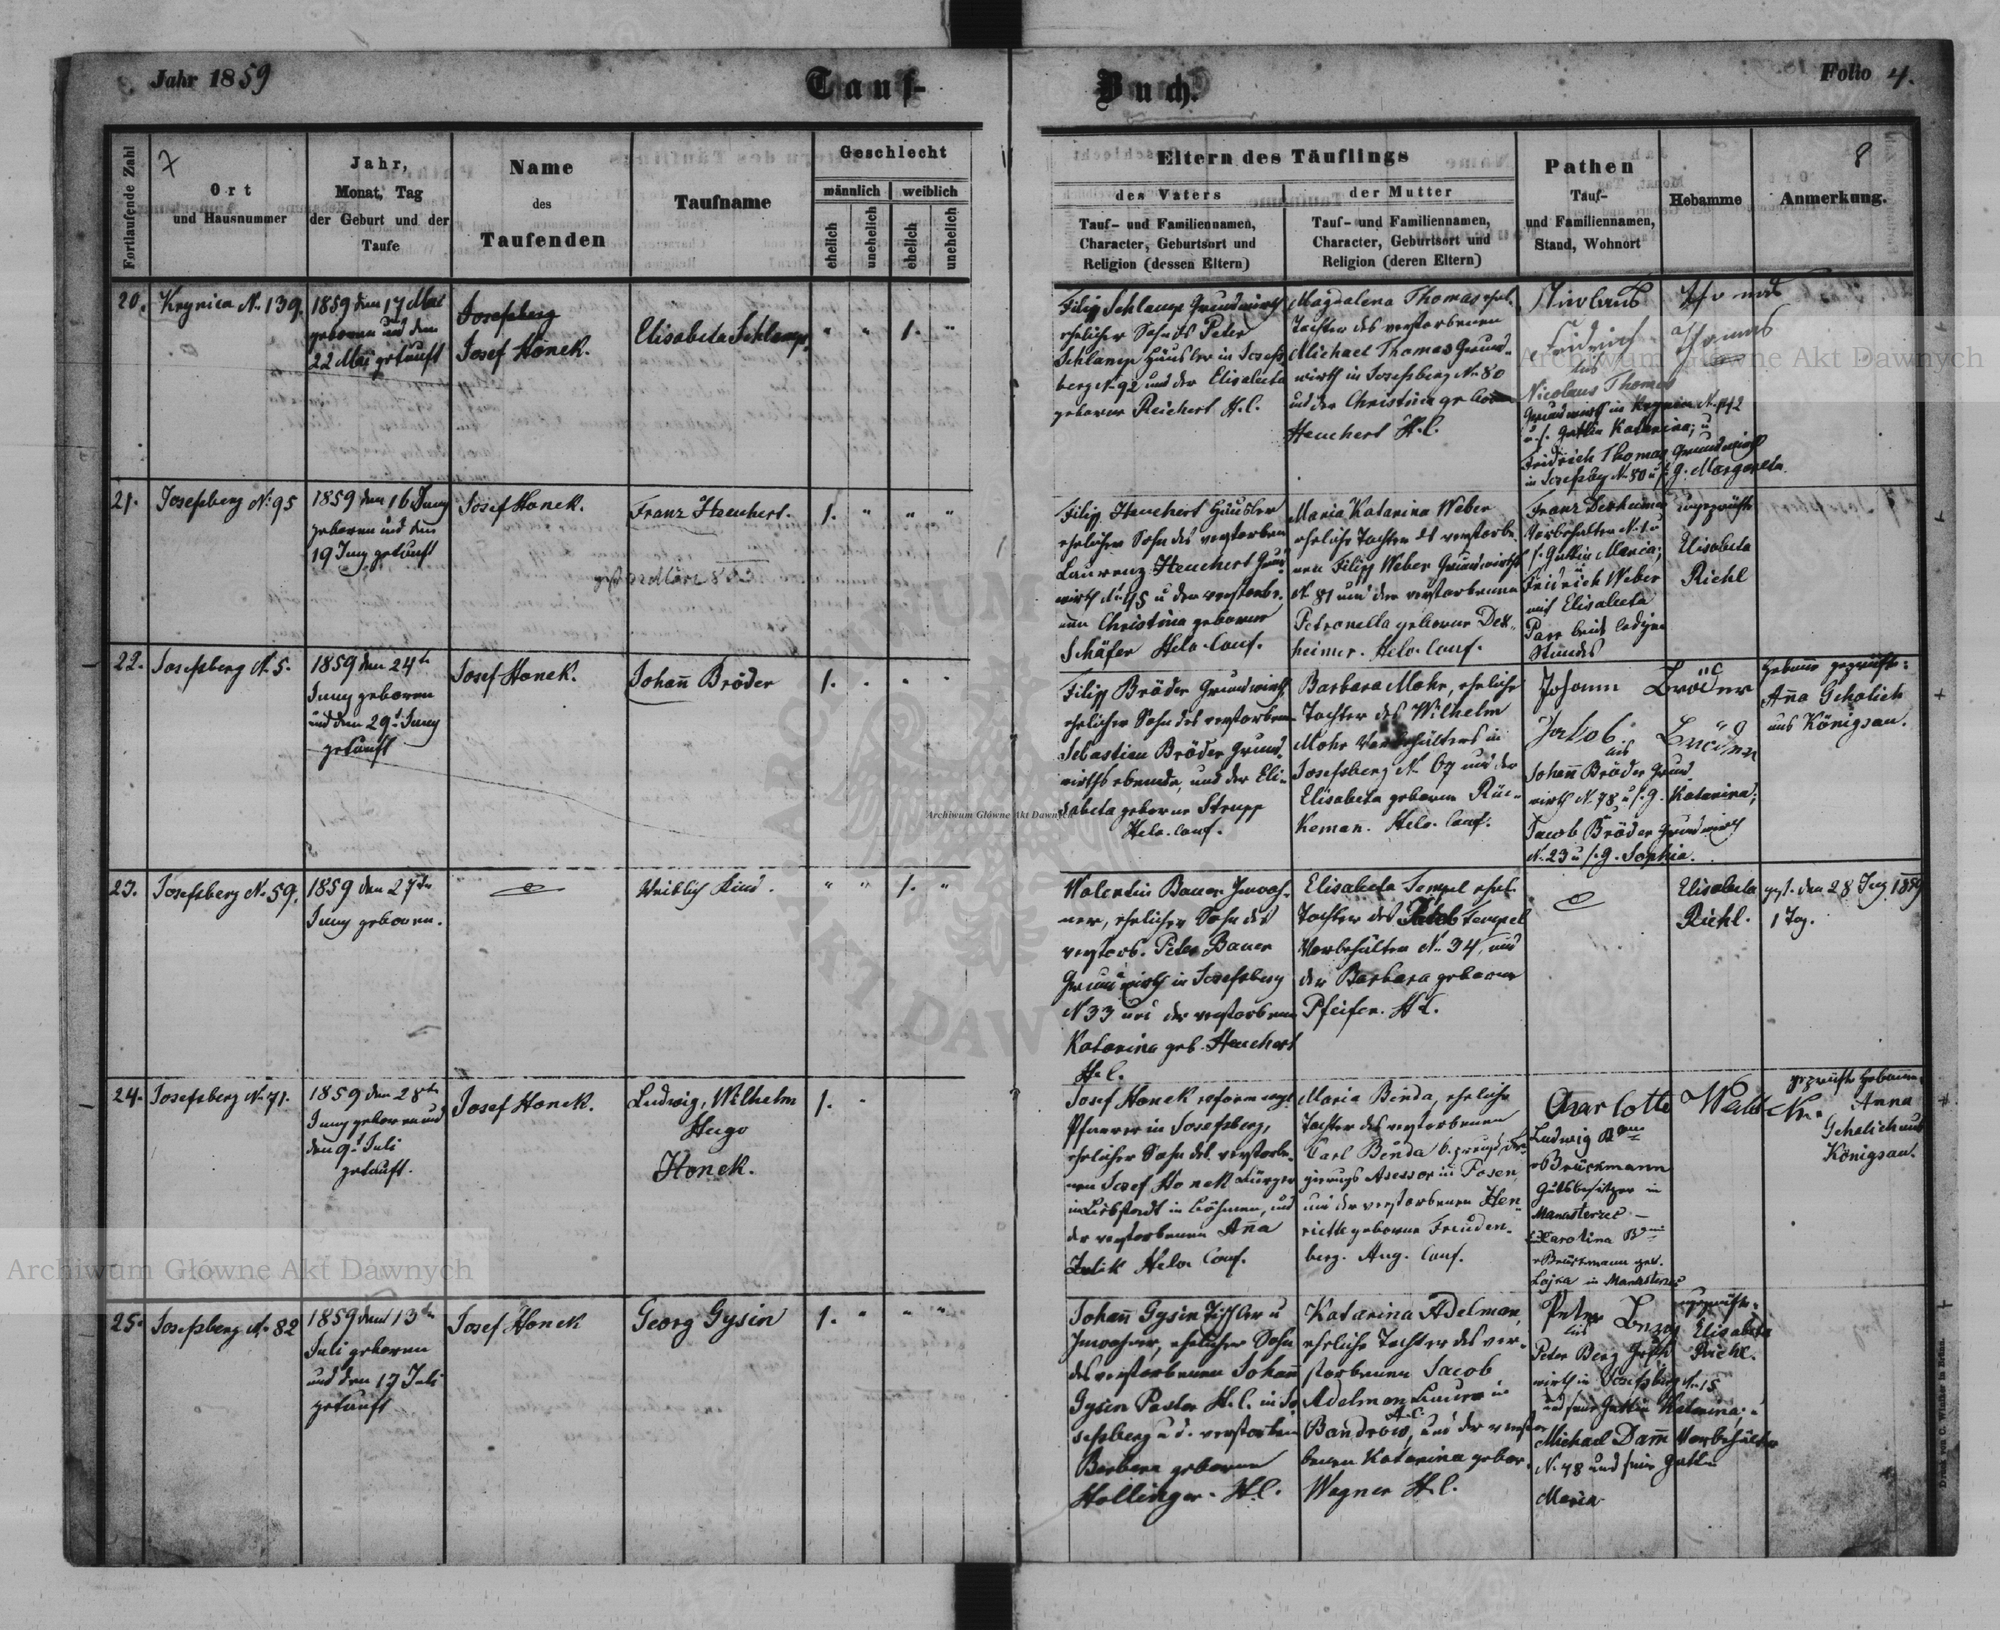 Jahr 1859
Tauf-
Buch.
Folio 4.
7
8
Fortlaufende Zahl
Ort
und Hausnummer
Jahr,
Monat, Tag
der Geburt und der
Taufe
Name
des
Taufenden
Taufname
Geschlecht
männlich
weiblich
ehelich
unehelich
ehelich
unehelich
Eltern des Täuflings
des Vaters
Tauf- und Familiennamen,
Character, Geburtsort und
Religion (dessen Eltern)
der Mutter
Tauf- und Familiennamen,
Character, Geburtsort und
Religion (deren Eltern)
Pathen
Tauf-
und Familiennamen,
Stand, Wohnort
Hebamme
Anmerkung.
20.
Krynica N. 139.
1859 den 17 Mai
geboren und den
22 Mai getauft
Josefsberg
Josef Honek.
Elisabeta Schlamp.
" " 1. "
Filip Schlamp Grundwirth
ehelicher Sohn des Peter
Schlamp Häusler in Josefs
berg N. 92 und der Elisabeta
geborne Reichert H.C.
Magdalena Thomas ehel.
Tochter des verstorbenen
Michael Thomas Grund-
wirth in Josefsberg N. 80
und der Christina geborne
Heuchert H.C.
Nicolaus Thomas
Grundwirth in Krynica N. 142
u. s. Gattin Katarina; u
Fridrich Thomas Grundwirth
in Josefsbg N. 80 u s. G. Margareta
21.
Josefsberg N. 95
1859 den 16 Juny
geboren und den
19 Juny getauft
Josef Honek.
Franz Heuchert.
1. " " "
Filip Heuchert Häusler
ehelicher Sohn des verstorben
Laurenz Heuchert Grund
wirth N. 95 u der verstorbe-
nen Christina geborne
Schäfer Helv. Conf.
Maria Katarina Weber
eheliche Tochter des verstorbe
nen Filip Weber Grundwirths
N. 81 und der verstorbenen
Petronella geborne Dex-
heimer. Helv. Conf.
Franz Dexheimer
Vorbehälter N. 1 u
s. Gattin Maria;
Fridrich Weber
mit Elisabeta
Parr beide ledigen
Standes
ungeprüfte
Elisabeta
Richl
22.
Josefsberg N. 5.
1859 den 24ten
Juny geboren
und den 29t Juny
getauft
Josef Honek.
Johañ Bröder
1. " " "
Filip Bröder Grundwirth,
ehelicher Sohn des verstorben
Sebastian Bröder Grund
wirths ebenda, und der Eli-
sabeta geborne Strupp
Helv. Conf.
Barbara Mohr, eheliche
Tochter des Wilhelm
Mohr Vorbehälters in
Josefsberg N. 67 und der
Elisabeta geborne Rüc-
keman. Helv. Conf.
Johann Bröder
Jakob Bröder
Johañ Bröder Grund
wirth N. 78 u s. G. Katarina;
Jacob Bröder Grundwirth
N. 23 u s. G. Sophia.
Hebame geprüfte:
Aña Geholich
aus Königsau.
23.
Josefsberg N. 59.
1859 den 27ten
Juny geboren.
Weiblich Kind.
" " 1. "
Valentin Bauer Inwoh-
ner, ehelicher Sohn des
verstorb. Peter Bauer
Grundwirth in Josefsberg
N 33 und der verstorbenen
Katarina geb. Heuchert
H.C.
Elisabeta Tempel ehel.
Tochter des Jakob Tempel
Vorbehälter N. 34, und
der Barbara geborne
Pfeifer. H.C.
Elisabeta
Richl.
gest. den 28 Juny 1859
1 Tag.
24.
Josefsberg N. 71.
1859 den 28ten
Juny geboren und
den 9t Juli
getauft.
Josef Honek.
Ludwig, Wilhelm
Hugo
Honek.
1. "
Josef Honek reform. ev.
Pfarrer in Josefsberg,
ehelicher Sohn des verstorbe-
nen Josef Honek Bürger
in Libstadt in Böhmen, und
der verstorbenen Aña
Helv. Conf.
Maria Binda, eheliche
Tochter des verstorbenen
Carl Binda k. preuß. Re-
gierungs Asessor in Posen,
und der verstorbenen Hen-
riette geborne Freuden-
berg. Aug. Conf.
Charlotte
Ludwig Bron
v Brückmann
Gutsbesitzer in
Manasterzec —
Carolina Bron
v Brückmann geb.
Lojka in Manasterzec
geprüfte Hebamme
Anna
Geholich aus
Königsau.
25.
Josefsberg N. 82
1859 den 13ten
Juli geboren
und den 17 Juli
getauft
Josef Honek
Georg Gysin
1. " " "
Johañ Gysin Tischler u
Inwohner, ehelicher Sohn
des verstorbenen Johañ
Gysin Pastor H.C. in Jo
sefsberg u d. verstorben
Barbara geborne
Hollinger. H.C.
Katarina Adelman,
eheliche Tochter des ver-
storbenen Jacob
Adelman Bauer in
Bandrow A.C., und der verstor
benen Katarina gebor.
Wagner H.C.
Peter Berg Grund
wirth in Josefsberg N. 15
und seine Gattin Katarina; u
Michael Damm Vorbehälter
N. 48 und seine Gattin
Maria
ungeprüfte:
Elisabeta
Richl.
Druck von C. Winiker in Brünn.
Archiwum Główne Akt Dawnych
Archiwum Główne Akt Dawnych
Archiwum Główne Akt Dawnych